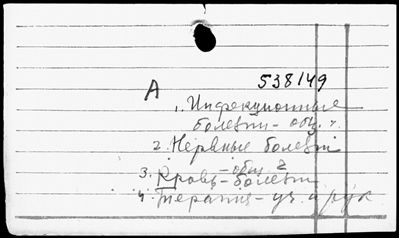 538149
А
1. Инфекционные
болезни - общ. ч.
2. Нервные болезни
- общ ч
3. Кровь - болезни
4. Терапия - уч. и рук